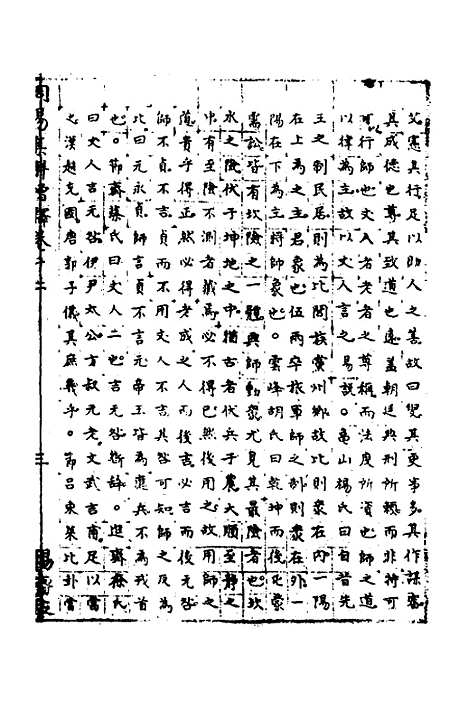 父憲其行足以助人之善故曰畏其更事多其作謀審
其成德也尊其致道也遠蓋朝廷典刑所賴而非特可
可行師也丈人者老者之尊稱而法度所資也師之道
以律為主故以丈人言之易說。龜山楊氏曰自昔先
王之制民居則為比閭族黨州鄉故比則衆在內一陽
在上為之主君象也伍兩卒旅軍師之制則衆在外一
陽在下為之主將帥象也。雲峰胡氏曰乾坤而後屯蒙
需訟皆有坎險之一體興師動衆尤見其最險者也坎
水之險伏于坤地之中猶古者伏兵于農大順至靜之
中有至險不測者藏焉必不得已然後用之故用師之
道貴乎得正然必得老成之人而後吉必吉而後无咎
師不貞不言貞而不用丈人不言其咎可知師之反為
比曰元永貞師言貞不言元帝王皆為應兵不為戎首
也。節齋蔡氏曰丈人二也吉无咎斷辭。進齋徐氏
曰丈人言元咎伊尹太公方叔元老文武吉甫足以當
之漢趙充國唐郭子儀其庶幾乎。節呂東萊比非當
周易集 卷十二
三